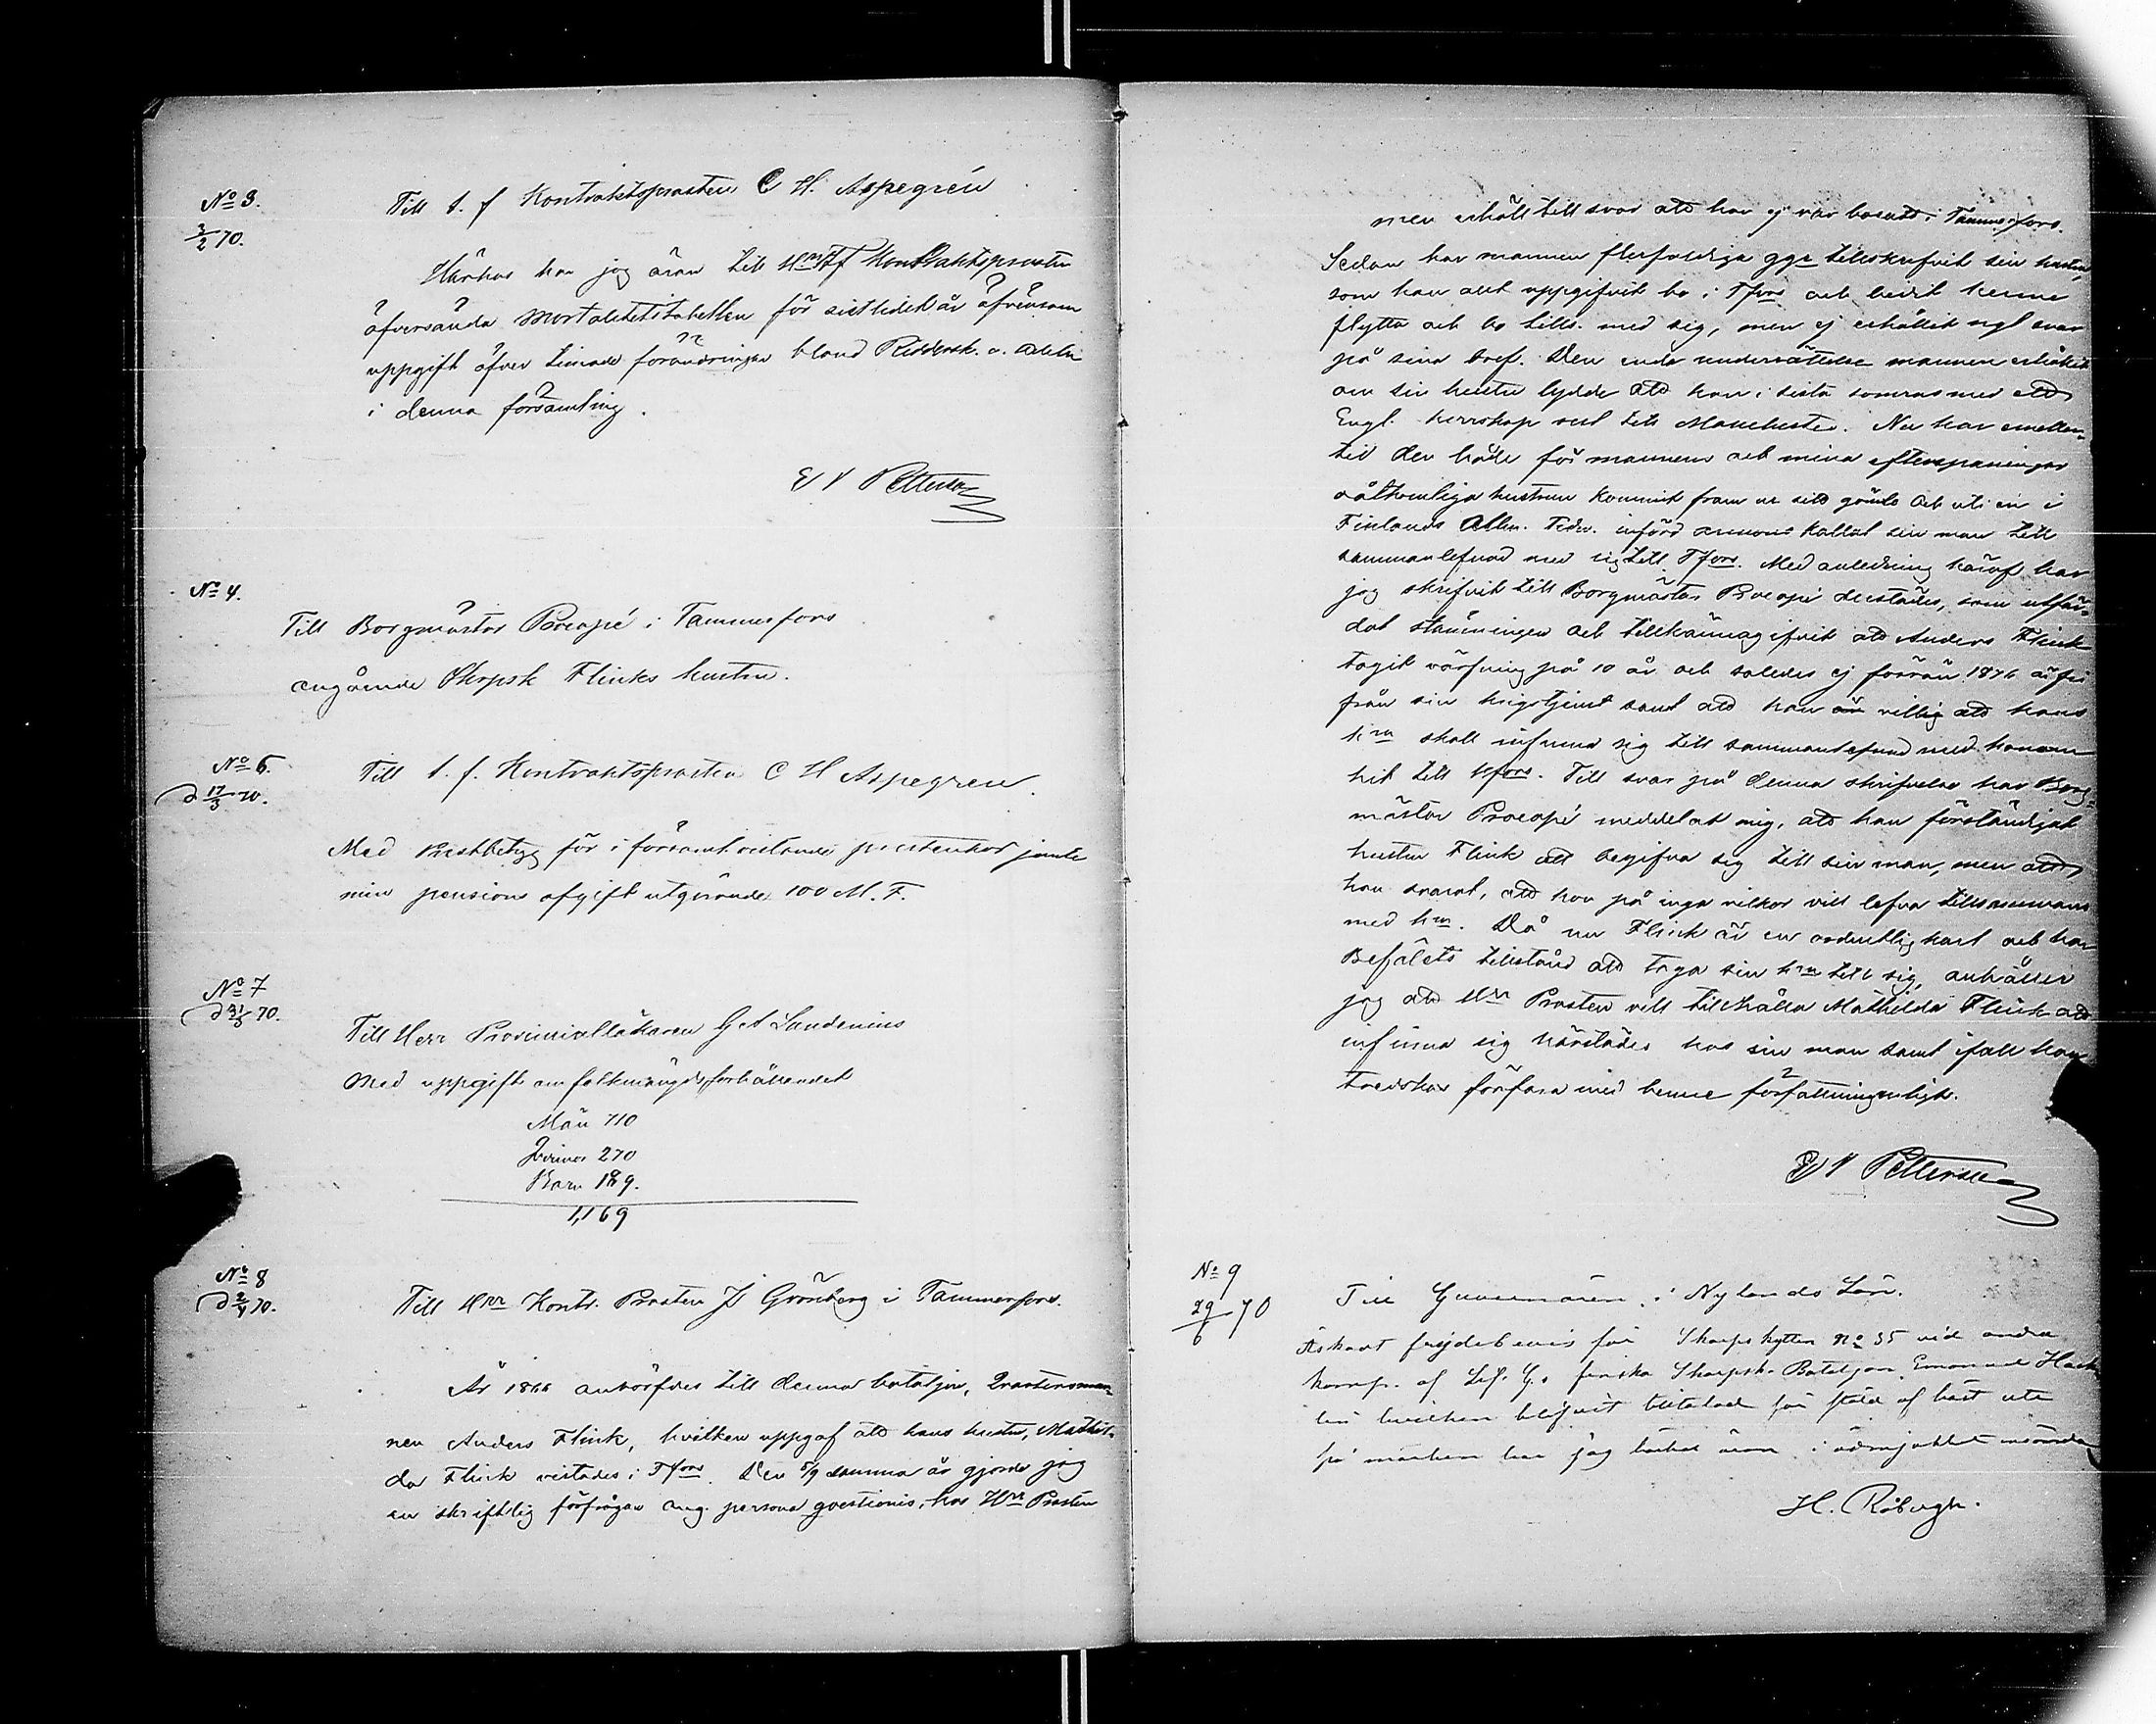 No 3.
3/2 70.
Till t. f. Kontraktsprosten C H. Aspegrén
Härhos har jag äran till Hrr t f Kontraktsprosten
öfversända Mortalitetstabellen för sistlidet år äfvensom
uppgift öfver timade förändringar bland Riddersk. o. Adeln
i denna församling.
E V Pettersson
No 4.
Till Borgmästar Procopé i Tammerfors
angående Skrpsk Flinks hustru.
No 6.
d 17/3 70.
Till t. f. Kontraktsprosten C H Aspegren.
Med Prestbetyg för i församl. vistande prestenkor jemte
min pensions afgift utgörande 100 M. F.
No 7
d 31/3 70.
Till Herr Provinsialläkaren G A Sandenius
Med uppgift om folkmängdsförhållandet
Män 710
Qvinor 270
Barn 189.
1,169
No 8
d 2/4 70.
Till Hrr Kontr. Prosten J Grönberg i Tammerfors.
År 1866 anvärfdes till denna bataljon, Qvartersman-
nen Anders Flink, hvilken uppgaf att hans hustru, Mathil-
da Flink vistades i Tfors. Den 5/9 samma år gjorde jag
en skriftlig förfrågan ang. persona qvestionis, hos Hrr Prosten
men erhöll till svar att hon ej var bosatt i Tammerfors.
Sedan har mannen flerfaldiga ggr tillskrifvit sin hustru,
som han allt uppgifvit bo i Tfors och bedit henne
flytta och bo tills. med sig, men ej erhållit ngt svar
på sina bref. Den enda underrättelse mannen erhållit
om sin hustru lydde att hon i sista somras med ett
Engl. herrskap rest till Manchester. Nu har emeller-
tid den både för mannens och mina efterspaningar
oåtkomliga hustrun kommit fram ur sitt gömle och uti en i
Finlands Allm. Tidn. införd annons kallat sin man till
sammanlefnad med sig till Tfors. Med anledning häraf har
jag skrifvit till Borgmästar Procopé derstädes, som utfär-
dat stämningen och tillkännagifvit att Anders Flink
tagit värfning på 10 år och således ej förrän 1876 är fri
från sin krigstjenst samt att han är villig att hans
hru skall infinna sig till sammanlefnad med honom
hit till Hfors. Till svar på denna skrifvelse har Borg-
mästar Procopé meddelat mig, att han förständigat
hustru Flink att begifva sig till sin man, men att
hon svarat, att hon på inga vilkor vill lefva tillsammans
med hm. Då nu Flink är en ordentlig karl och har
Befälets tillstånd att taga sin hru till sig, anhåller
jag att Hrr Prosten vill tillhålla Mathilda Flink att
infinna sig härstädes hos sin man samt ifall hon
tredskar förfara med henne författningsenligt.
E V Pettersson
No 9
29/6 70
Till Guvernören i Nylands Län.
Äskadt frejdebevis för Skarpskytten No 35 vid andra
komp. af Lif. G. finska Skarpsk. Bataljon Emanuel
hvilken blifvit tilltalad för stöld af häst ute
på marken har jag härhos äran i ödmjukhet insända